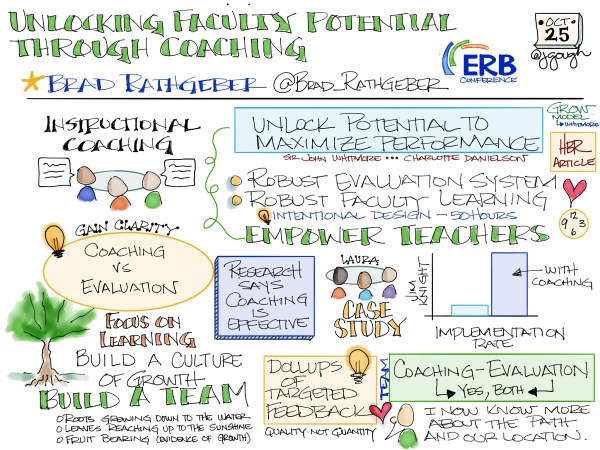 UNLOCKING FACULTY POTENTIAL
THROUGH COACHING
OCT
25
@jgough
BRAD RATHGEBER @BRAD_RATHGEBER
ERB
CONFERENCE
INSTRUCTIONAL
COACHING
UNLOCK POTENTIAL TO
MAXIMIZE PERFORMANCE
SIR JOHN WHITMORE ••• CHARLOTTE DANIELSON
GROW
MODEL
WHITMORE
HBR
ARTICLE
ROBUST EVALUATION SYSTEM
ROBUST FACULTY LEARNING
INTENTIONAL DESIGN – 50 HOURS
EMPOWER TEACHERS
12
9 3
6
GAIN CLARITY
COACHING
VS
EVALUATION
RESEARCH
SAYS
COACHING
IS
EFFECTIVE
LAURA
CASE
STUDY
JIM
KNIGHT
WITH
COACHING
IMPLEMENTATION
RATE
FOCUS ON
LEARNING
BUILD A CULTURE
OF GROWTH
BUILD A TEAM
O ROOTS GROWING DOWN TO THE WATER
O LEAVES REACHING UP TO THE SUNSHINE
O FRUIT BEARING (EVIDENCE OF GROWTH)
DOLLUPS
OF
TARGETED
FEEDBACK
QUALITY NOT QUANTITY
TEAM
COACHING-EVALUATION
YES, BOTH
I NOW KNOW MORE
ABOUT THE PATH
AND OUR LOCATION.